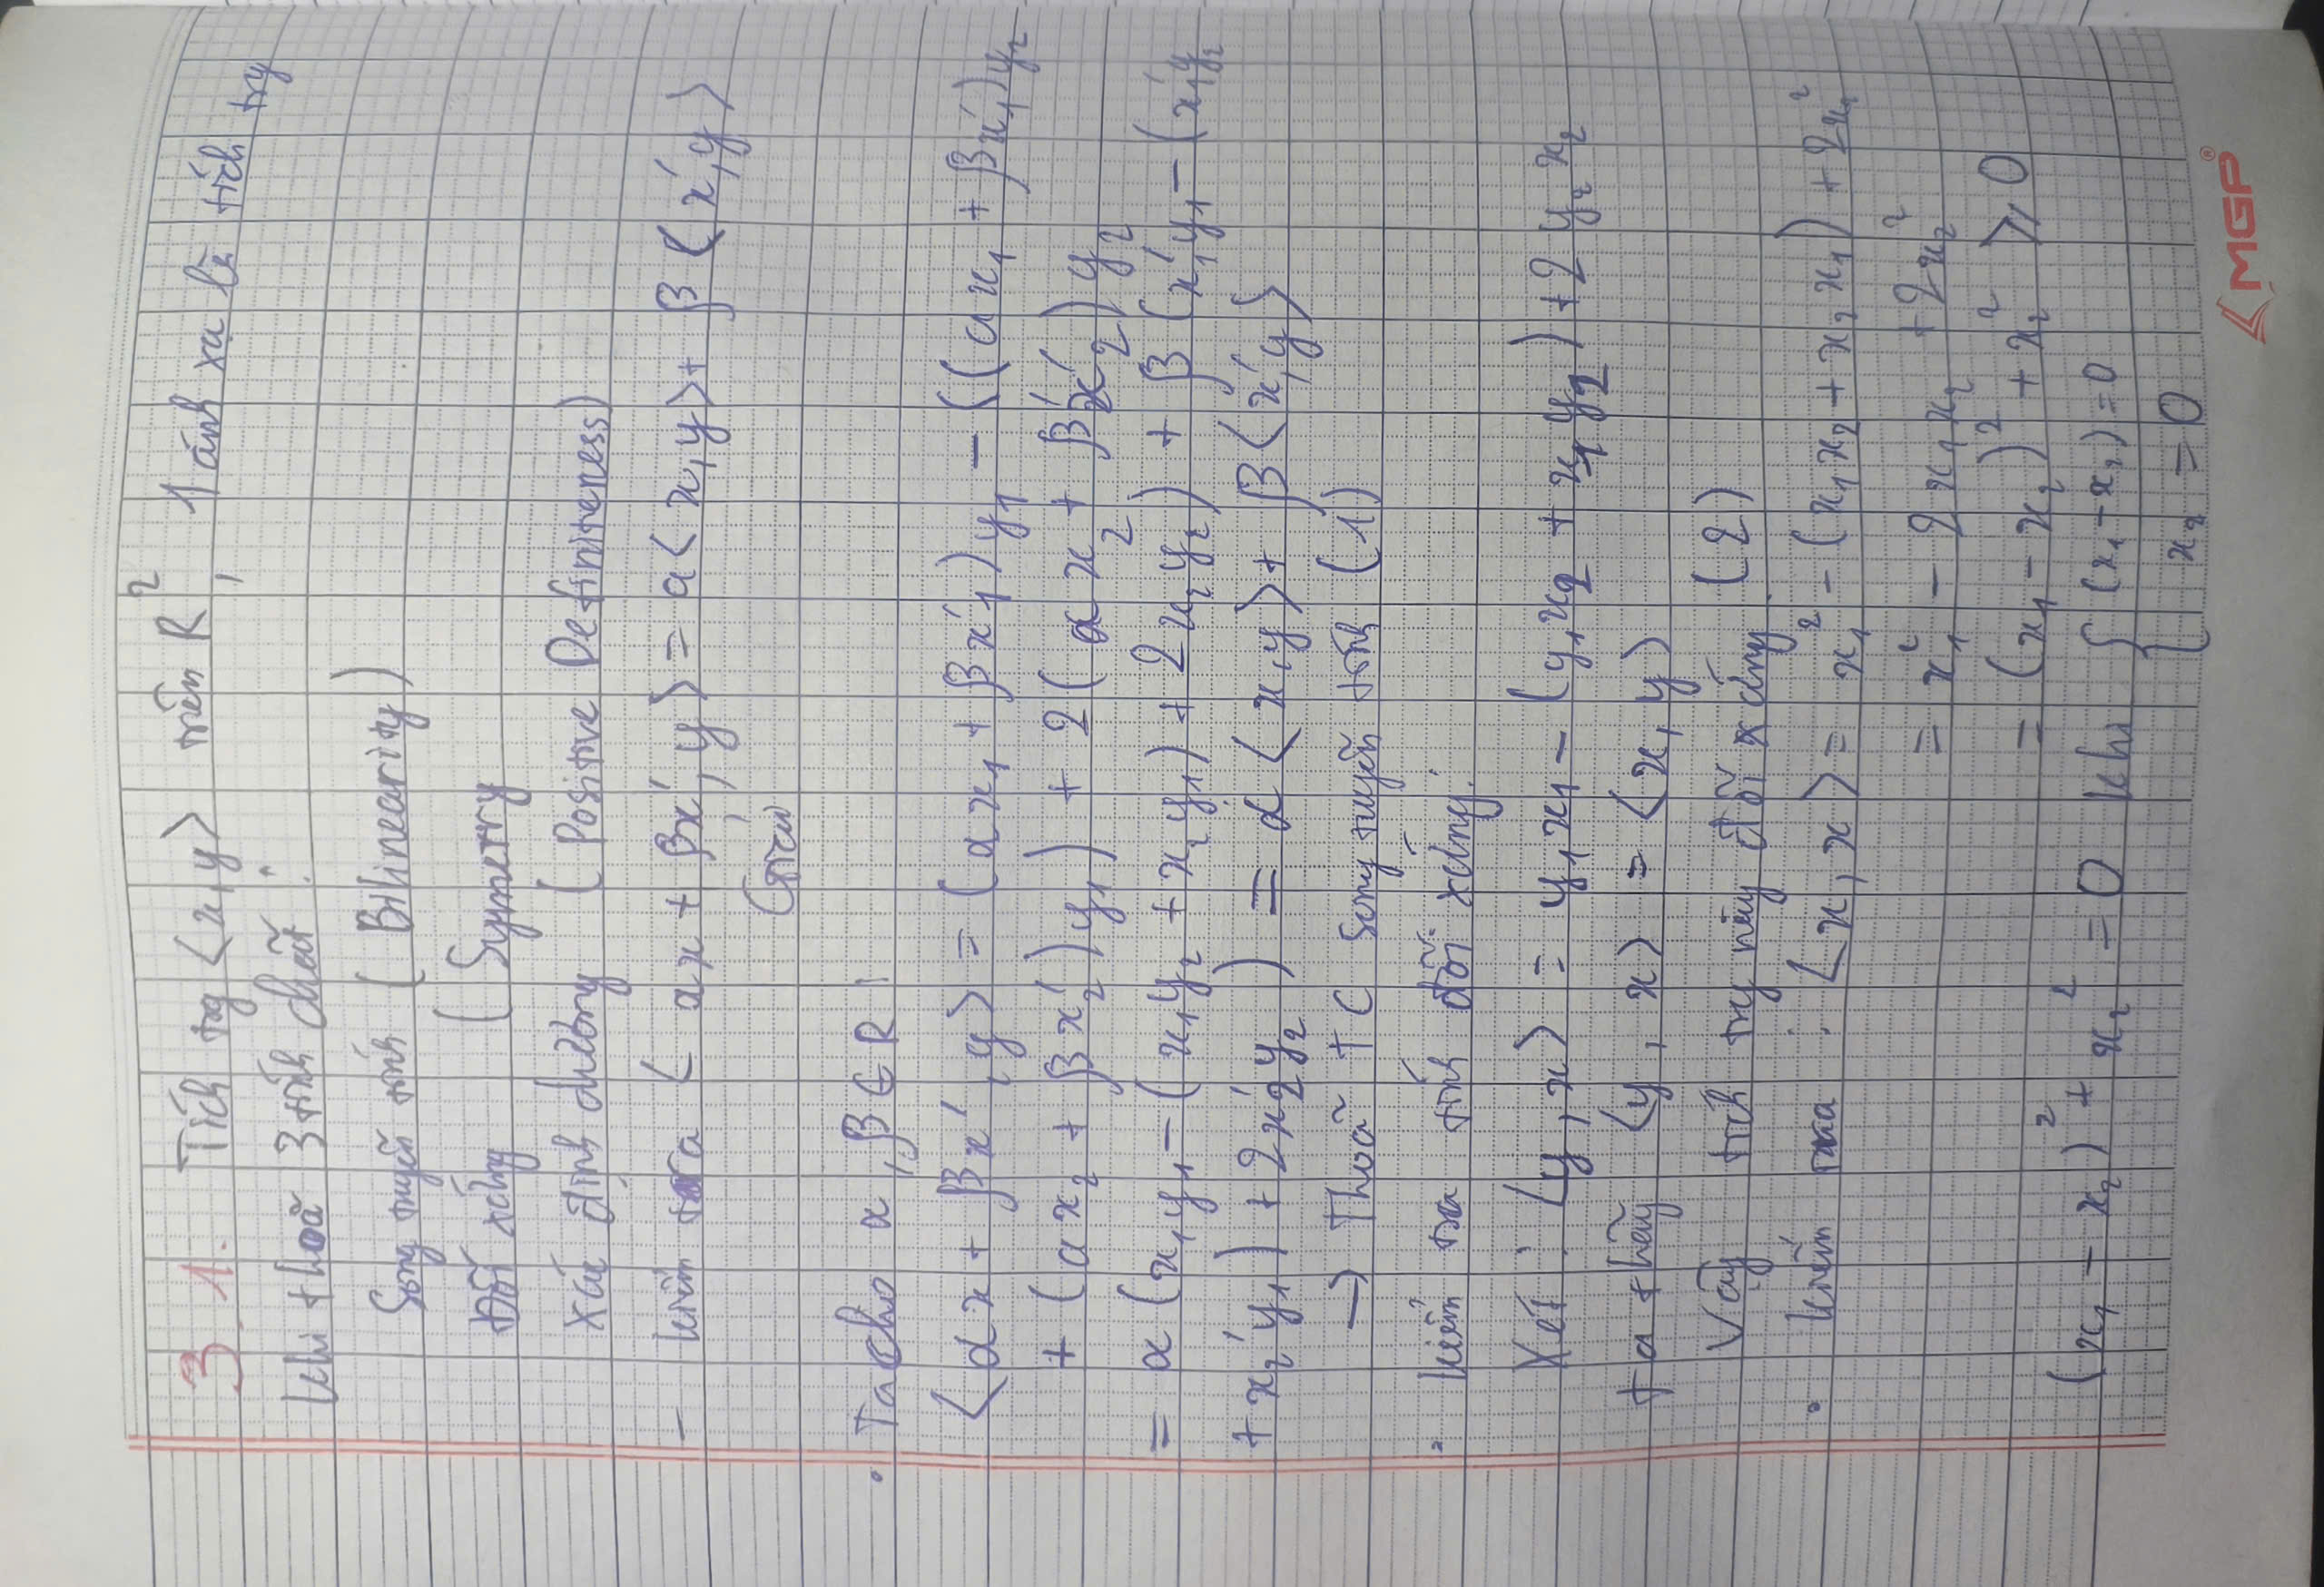 3.1. Tích trg <x,y> trên R², 1 ánh xạ là tích trg
khi thoả 3 tính chất:
Song tuyến tính (Bilinearity)
Đối xứng (Symmetry
Xác định dương (Positive Definiteness)
- kiểm tra <αx + βx', y> = α<x,y> + β<x',y>
. Ta cho α, β ∈ R !
<αx + βx', y> = (αx₁ + βx'₁)y₁ - ((αx₁ + βx'₁)y₂
+ (αx₂ + βx₂')y₁) + 2(αx₂ + βx'₂)y₂
= α(x₁y₁ - (x₁y₂ + x₂y₁) + 2x₂y₂) + β(x₁'y₁ - (x₁'y₂
+ x₂'y₁) + 2x₂'y₂) = α<x,y> + β<x',y>
→ Thoả t/c song tuyến tính (1)
. kiểm tra tính đối xứng:
Xét: <y,x> = y₁x₁ - (y₁x₂ + x₁y₂) + 2y₂x₂
ta thấy <y,x> = <x,y>
Vậy tích trg này đối xứng (2)
. kiểm traa : <x,x> = x₁² - (x₁x₂ + x₂x₁) + 2x₂²
= x₁² - 2x₁x₂ + 2x₂²
= (x₁ - x₂)² + x₂² ⩾ 0
(x₁ - x₂)² + x₂² = 0 khi { (x₁ - x₂) = 0
x₂ = 0
MGP®